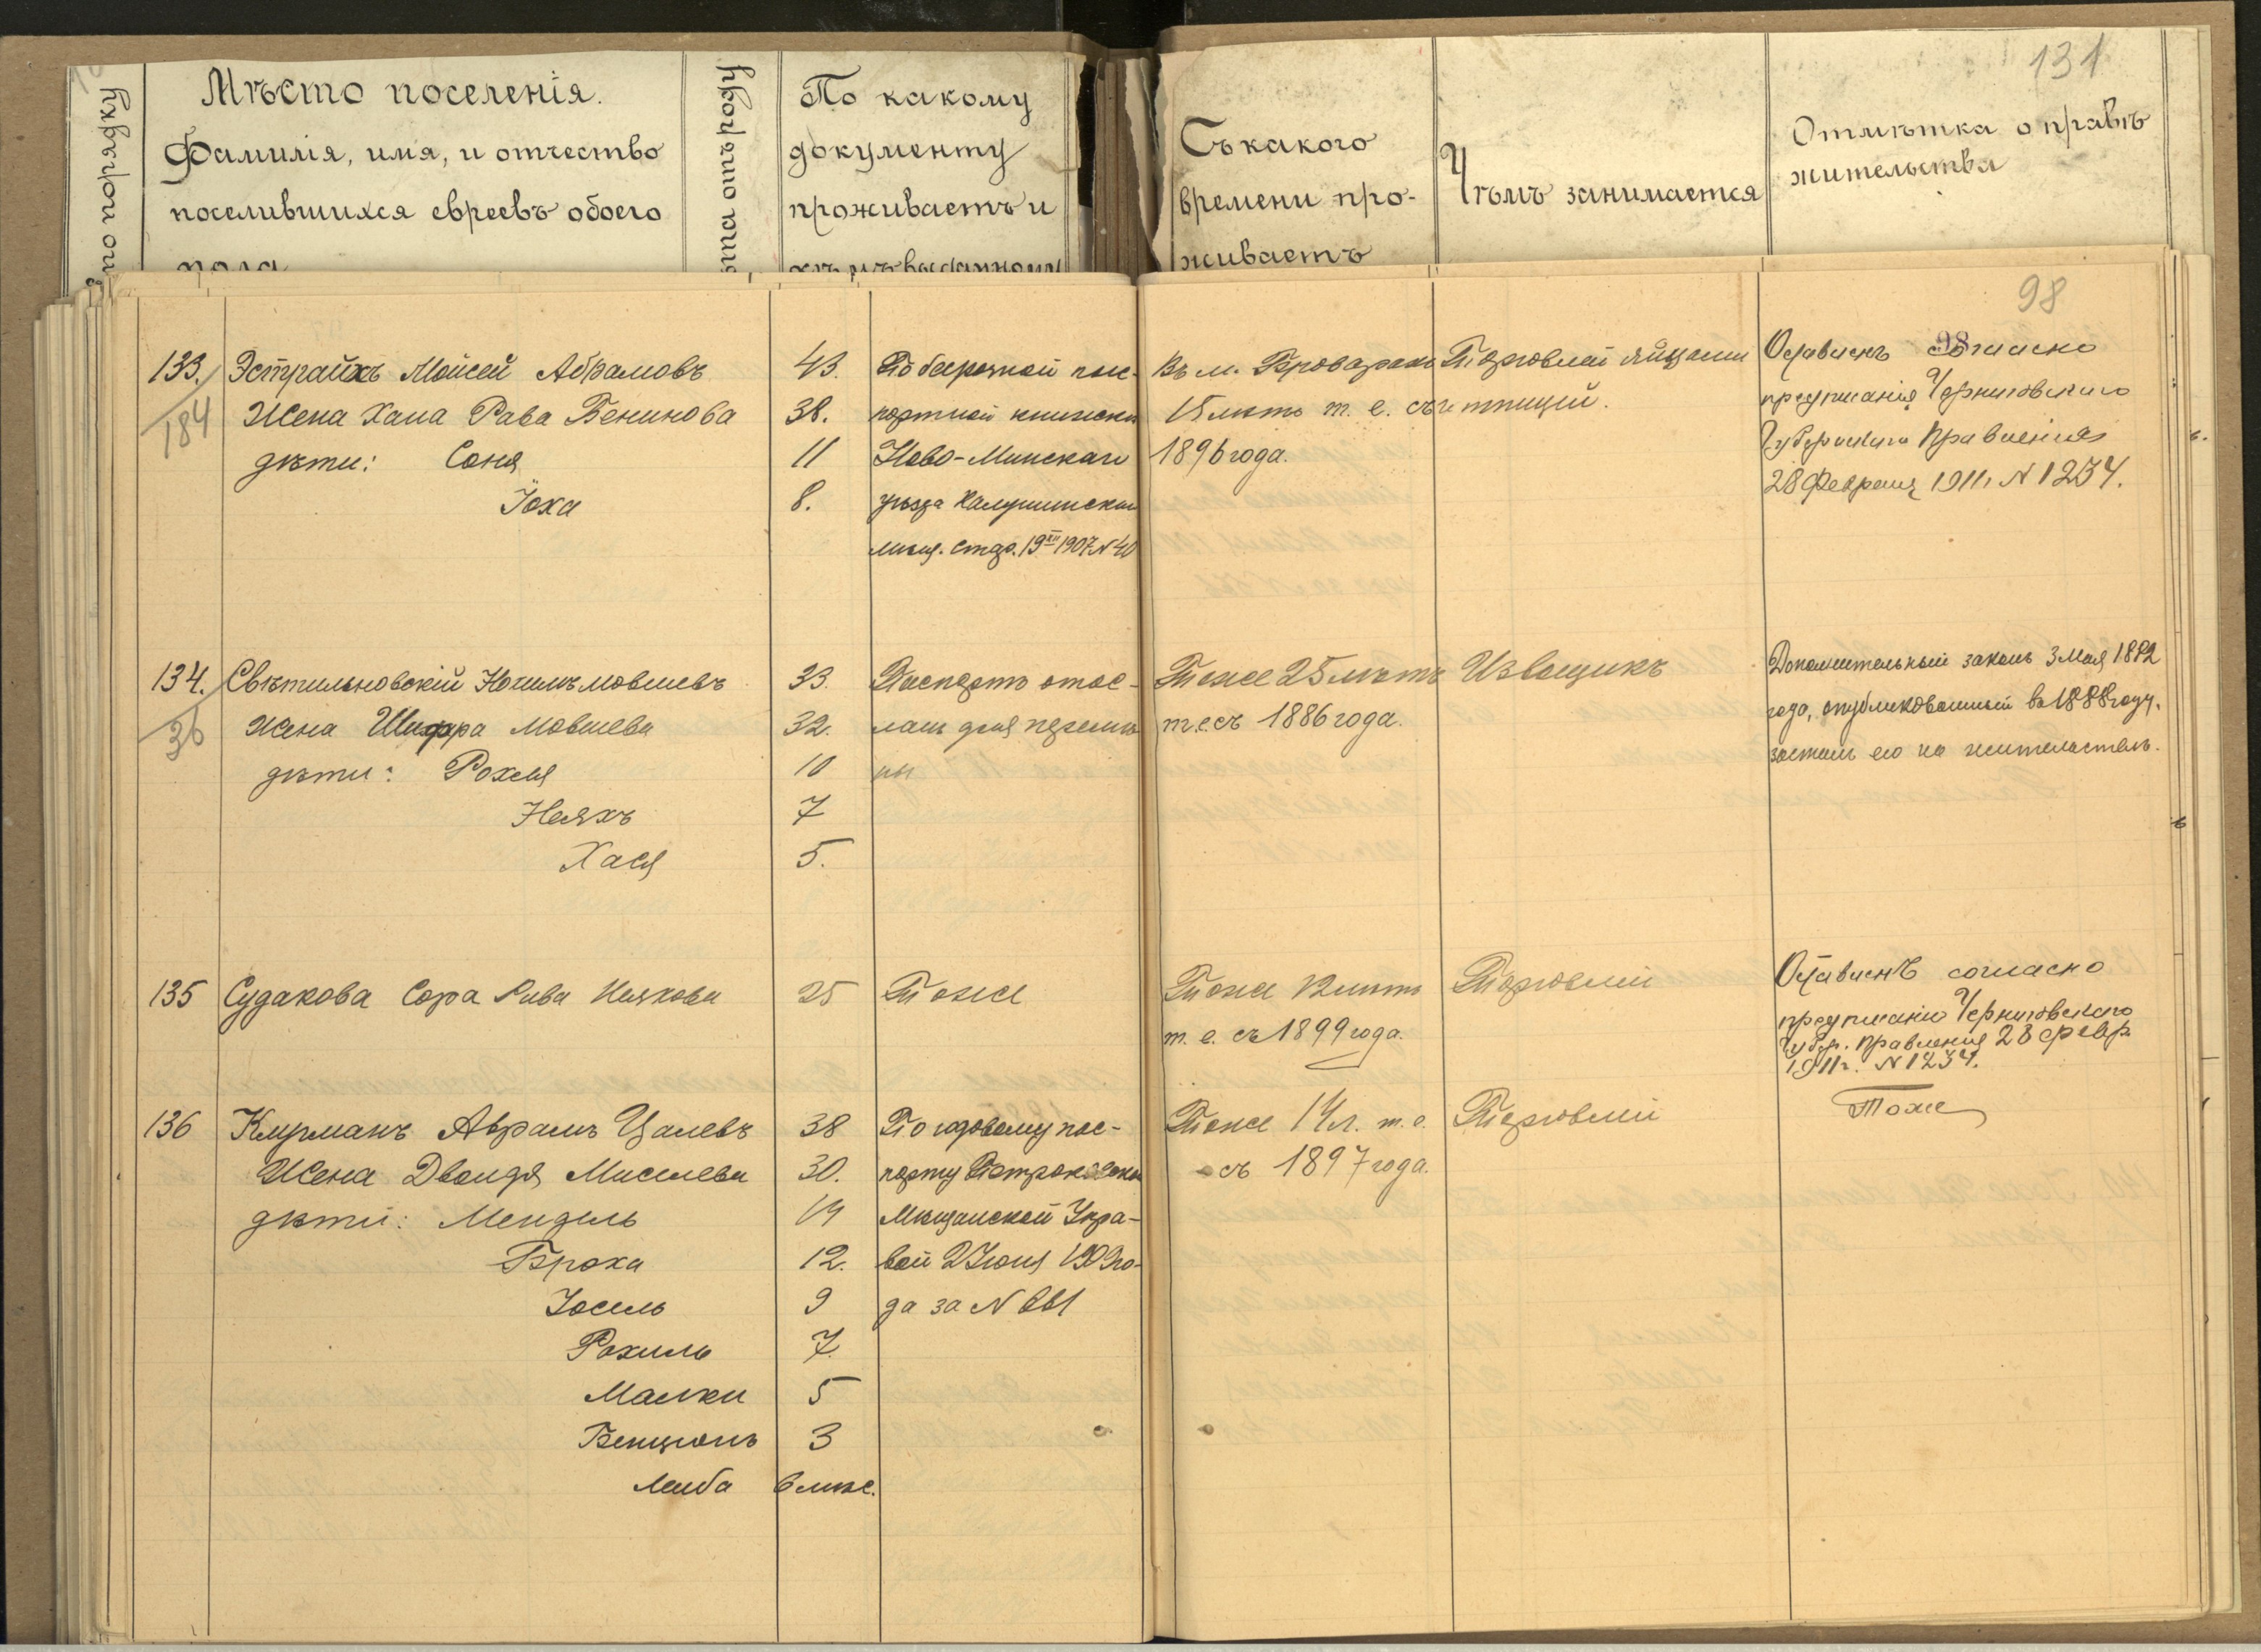 131
по порядку
Мѣсто поселенія.
Фамилія, имя, и отчество
поселившихся евреевъ обоего
пола
отъ роду
По какому
документу
проживаетъ и
Съ какого
времени про-
живаетъ
Чѣмъ занимается
Отмѣтка о правѣ
жительства
98
98
133.
184
Эстрайхъ Мойсей Абрамовъ
43.
По безсрочной пас-
Въ м. Броварахъ
Торговлей яйцами
Оставленъ согласно
Жена Хана Рава Бенинова
38.
портной книжки
15 лѣтъ т. е. съ
и птицей.
предписанія Черниговскаго
дѣти: Соня
11
Ново-Минскаго
1896 года.
Губернскаго Правленія
Іоха
8.
уѣзда Калушинской
28 Февраля 1911 г N 1234.
мѣщ. Стар. 19 XII 1907 N 40
134.
36
Свѣтильновскій Нохимъ Мовшевъ
33.
Паспортъ отос-
Тоже 25 лѣтъ
Извощикъ
Дополнительный законъ 3 Мая 1882
Жена Шифра Мовшева
32.
ланъ для перемѣ
т. е. съ 1886 года.
года, опубликованный въ 1888 году.
дѣти: Рохля
10
ны
засталъ его на жительствѣ.
Неяхъ
7
Хася
5.
135
Судакова Сора Рива Неяхова
25
Тоже
Тоже 12 лѣтъ
Торговлей
Оставленъ согласно
т. е. съ 1899 года.
предписанію Черниговскаго
Губер. Правленія 28 февр
1911 г. N 1234.
136
Клурманъ Аврамъ Цалевъ
38
По годовому пас-
Тоже 14 л. т. е.
Торговлей
Тоже
Жена Двойдя Мисилева
30.
порту
съ 1897 года.
дѣти: Мендель
14
Мѣщанской Упра-
Броха
12.
вой 2 Іюня 1909 го-
Іосель
9
да за N 661
Рохиль
7.
Малки
5
Бенціонъ
3
Лейба
6 мѣс.